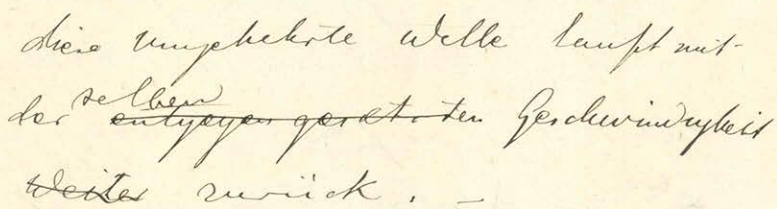 diese umgekehrte Welle lauft mit
der selben entgegengesetzten Geschwindigkeit
weiter zurück. –